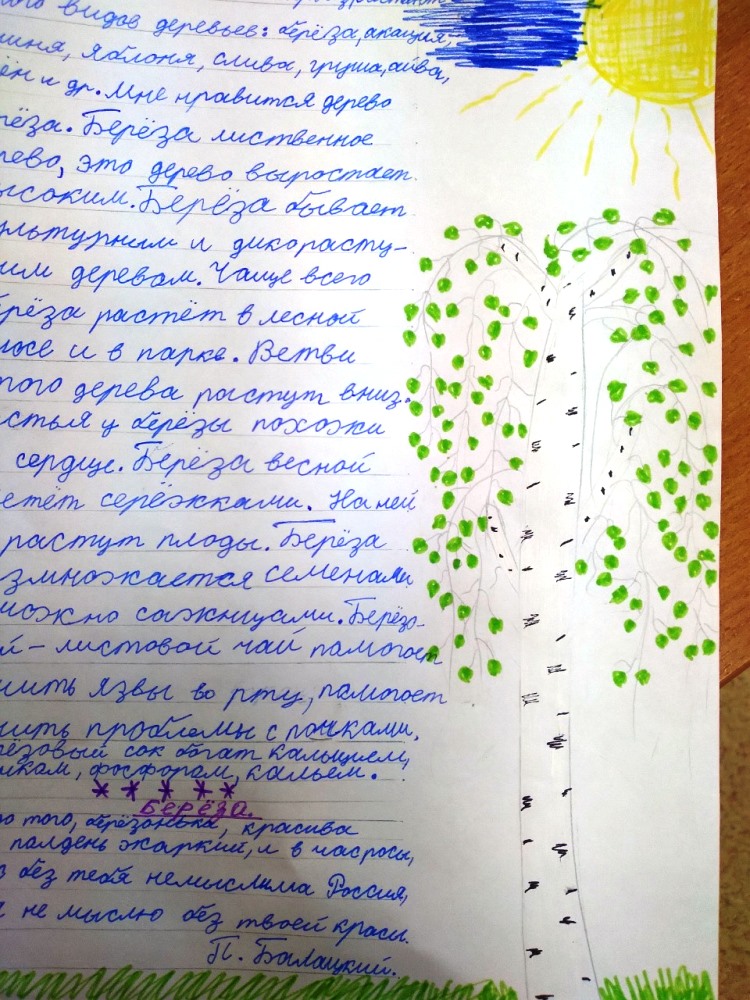 видов деревьев: берёза, акация,
яблоня, слива, груша, айва,
и др. Мне нравится дерево
рёза. Берёза лиственное
рево, это дерево выростает
ысоким. Берёза бывает
ультурним и дикорасту-
им деревам. Чаще всего
рёза растёт в лесной
и в парке. Ветви
того дерева растут вниз.
стья у берёзы похожи
сердце. Берёза весной
етёт серёжками. На ней
растут плоды. Берёза
змножается семенами
можно сажнцами. Берёзо-
й - листовой чай памогает
чить язвы во рту, памогает
чить проблемы с почками.
рёзовый сок богат кальцием,
фосфорам, кальем.
* * * * *
Берёза.
о того, берёзонька, красива
палдень жаркий, и в час росы,
без тебя немислима Россия,
не мыслю без твоей красы.
П. Балацкий.